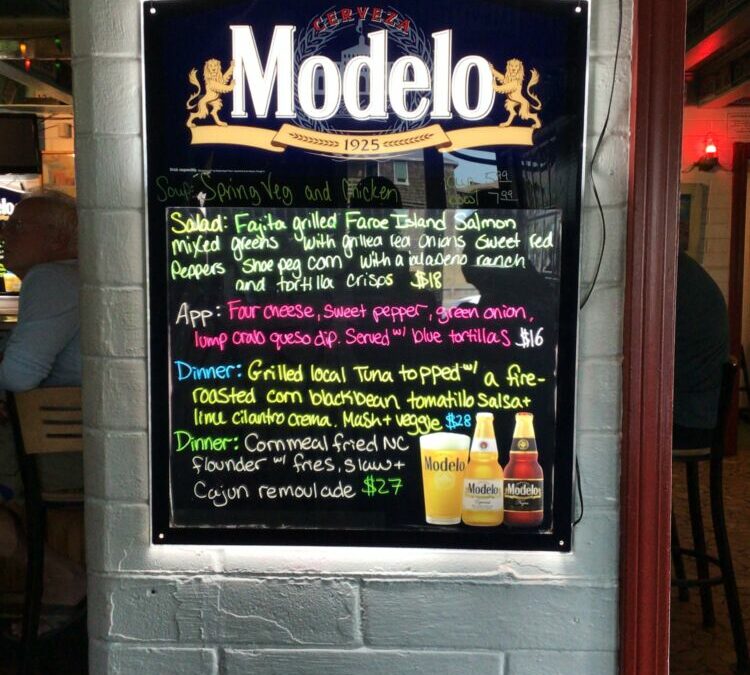 CERVEZA
Modelo
1925
Soup: Spring Veg and Chicken
cup 5.99
bowl 7.99
Salad: Fajita grilled Faroe Island Salmon
mixed greens with grilled red onions sweet red
peppers shoe peg corn with a jalapeno ranch
and tortilla crisps $18
App: Four cheese, sweet pepper, green onion,
lump crab queso dip. Served w/ blue tortillas $16
Dinner: Grilled local Tuna topped w/ a fire-
roasted corn blackbean tomatillo salsa +
lime cilantro crema. Mash + veggie $28
Dinner: Cornmeal fried NC
flounder w/ fries, slaw +
Cajun remoulade $27
Modelo
Modelo
Modelo